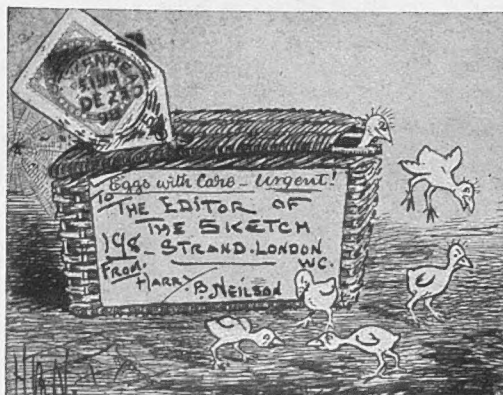 Eggs with Care - Urgent!
To
THE EDITOR OF
THE SKETCH
198 - STRAND. LONDON
W.C.
From.
HARRY B. NEILSON
DE 23
H.B.N.